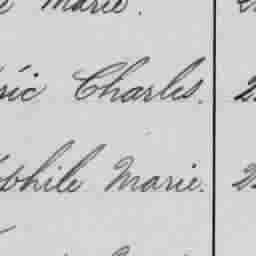 Marie.
ric Charles. 2
phile Marie. 2